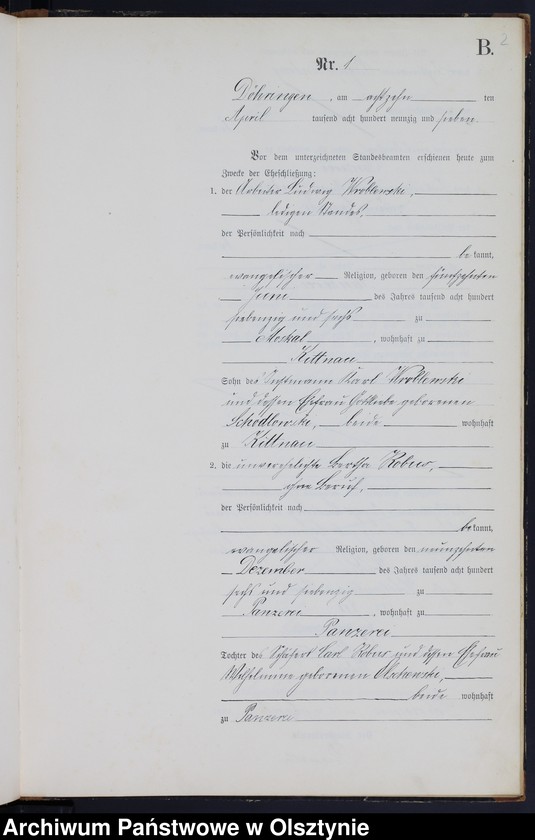 B. 2
Nr. 1
Döhringen, am achtzehn ten
April tausend acht hundert neunzig und sieben
Vor dem unterzeichneten Standesbeamten erschienen heute zum
Zwecke der Eheschließung:
1. der Arbeiter Ludwig Wroblewski,
ledigen Standes,
der Persönlichkeit nach
bekannt,
evangelischer Religion, geboren den fünfzehnten
Juni des Jahres tausend acht hundert
siebenzig und sechs zu
Moskal, wohnhaft zu
Kittnau
Sohn des Karl Wroblewski
und dessen Ehefrau geborenen
beide wohnhaft
zu Kittnau
2. die unverehelichte Bertha Kobus,
ohne Beruf,
der Persönlichkeit nach
bekannt,
evangelischer Religion, geboren den neunzehnten
Dezember des Jahres tausend acht hundert
sechs und siebenzig zu
Panzerei, wohnhaft zu
Panzerei
Tochter des Schäfers Carl Kobus und dessen Ehefrau
Wilhelmine geborenen
beide wohnhaft
zu Panzerei
Archiwum Państwowe w Olsztynie